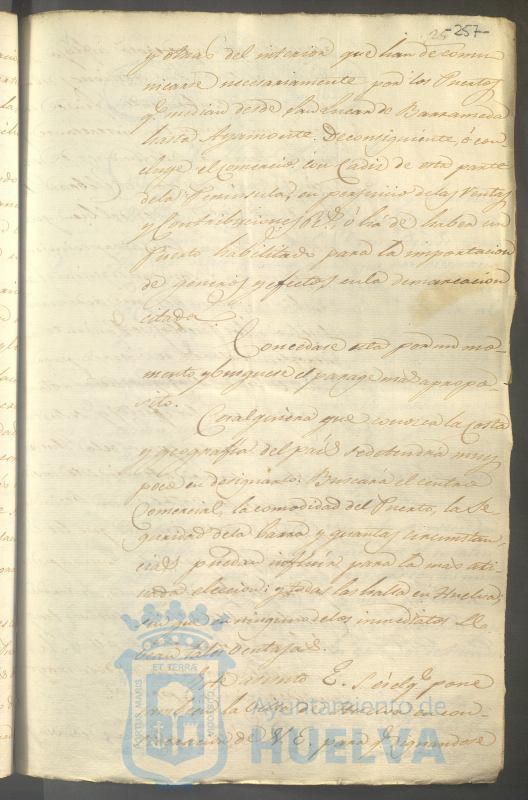 25 -257-
y otras del interior que han de comu
nicarse necesariamente por los Puertos
q.e median desde San Lucar de Barrameda
hasta Ayamonte. De consiguiente, ó con
cluye el comercio con Cadiz de esta parte
dela Peninsula, en perjuicio delas Ventas
y Contribuciones R.s ó há de haber un
Puerto habilitado para la importacion
de generos y efectos en la demarcacion
citada.
Concedase esta por un mo-
mento y busquese el parage mas apropo-
sito.
Cualquiera que conozca la Costa
y geografia del país se detendrá muy
poco en designarlo: Buscará el centro
Comercial, la comodidad del Puerto, la Se-
guridad dela barra y quantas circunstan-
cias puedan influir para la mas ati-
nada eleccion: y todas las halla en Huelva,
sin que en ninguno delos inmediatos
tales Ventajas.
E. S. es el q.e pone
la Villa de Huelva en con-
sideracion de V.E. para q.e dignandose
PORTUS MARIS ET TERRÆ CUSTODIA
Ayuntamiento de
HUELVA